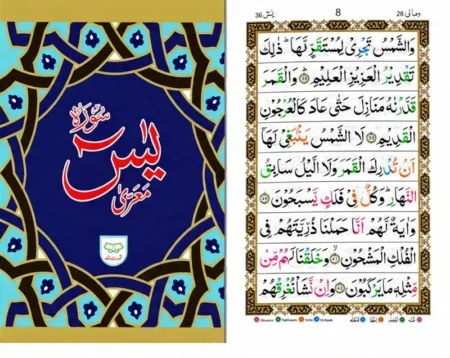 سورة
يٰسٓ
معرىٰ
يٰسٓ 36
8
ومالی 26
وَالشَّمْسُ تَجْرِیْ لِمُسْتَقَرٍّ لَّهَا ؕ ذٰلِكَ
تَقْدِیْرُ الْعَزِیْزِ الْعَلِیْمِ ۝ وَالْقَمَرَ
قَدَّرْنٰهُ مَنَازِلَ حَتّٰی عَادَ كَالْعُرْجُوْنِ
الْقَدِیْمِ ۝ لَا الشَّمْسُ یَنْۢبَغِیْ لَهَاۤ
اَنْ تُدْرِكَ الْقَمَرَ وَلَا الَّیْلُ سَابِقُ
النَّهَارِ ؕ وَكُلٌّ فِیْ فَلَكٍ یَّسْبَحُوْنَ ۝
وَاٰیَةٌ لَّهُمْ اَنَّا حَمَلْنَا ذُرِّیَّتَهُمْ فِی
الْفُلْكِ الْمَشْحُوْنِ ۝ وَخَلَقْنَا لَهُمْ مِّنْ
مِّثْلِهٖ مَا یَرْكَبُوْنَ ۝ وَاِنْ نَّشَاْ نُغْرِقْهُمْ